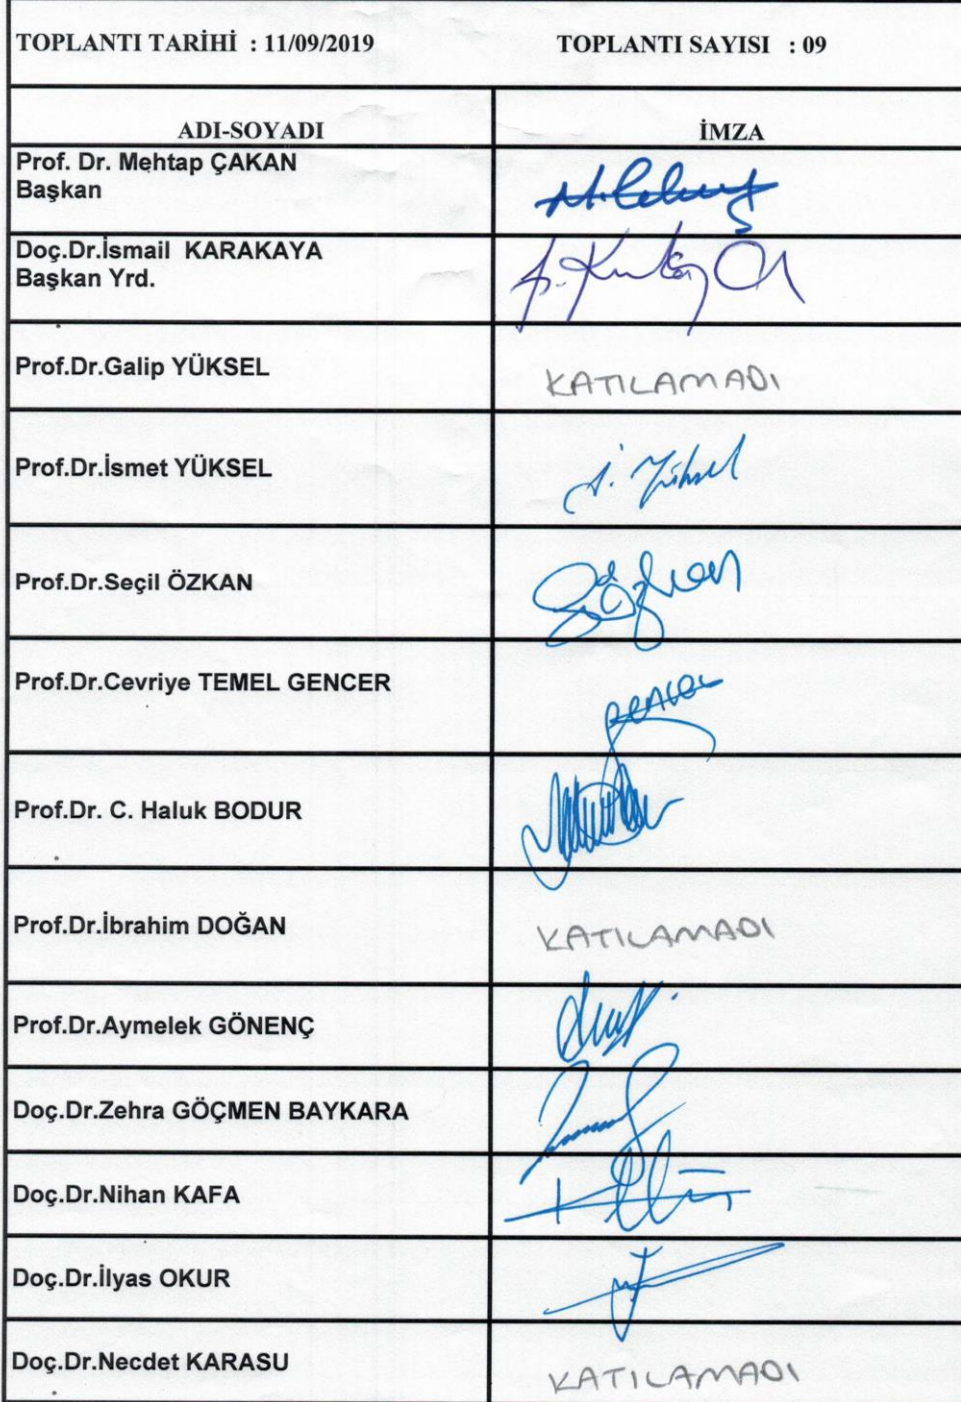 TOPLANTI TARİHİ : 11/09/2019 TOPLANTI SAYISI : 09
ADI-SOYADI İMZA
Prof. Dr. Mehtap ÇAKAN
Başkan
Doç.Dr.İsmail KARAKAYA
Başkan Yrd.
Prof.Dr.Galip YÜKSEL KATILAMADI
Prof.Dr.İsmet YÜKSEL İ. Yüksel
Prof.Dr.Seçil ÖZKAN
Prof.Dr.Cevriye TEMEL GENCER
Prof.Dr. C. Haluk BODUR
Prof.Dr.İbrahim DOĞAN KATILAMADI
Prof.Dr.Aymelek GÖNENÇ
Doç.Dr.Zehra GÖÇMEN BAYKARA
Doç.Dr.Nihan KAFA
Doç.Dr.İlyas OKUR
Doç.Dr.Necdet KARASU KATILAMADI